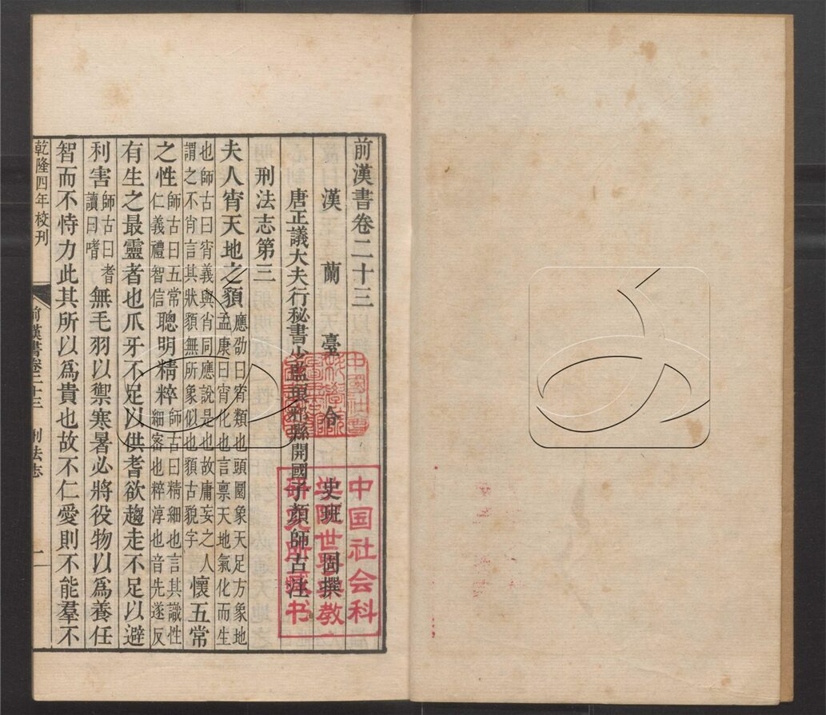 前漢書卷二十三
漢蘭臺令史班固撰
唐正議大夫行秘書少監琅邪縣開國子顏師古注
刑法志第三
夫人宵天地之䫉應劭曰宵類也頭圜象天足方象地孟康曰宵化也言稟天地氣化而生
也師古曰宵義與肖同應說是也故庸妄之人謂之不肖言其狀䫉無所象似也䫉古貌字懷五常
之性師古曰五常仁義禮智信聰明精粹師古曰精細也言其識性細密也粹淳也音先遂反
有生之最靈者也爪牙不足以供耆欲趨走不足以避
利害師古曰耆讀曰嗜無毛羽以禦寒暑必將役物以爲養任
智而不恃力此其所以爲貴也故不仁愛則不能羣不
乾隆四年校刊
前漢書卷二十三 刑法志 一
中国社会科
学院世界宗教
研究所藏书